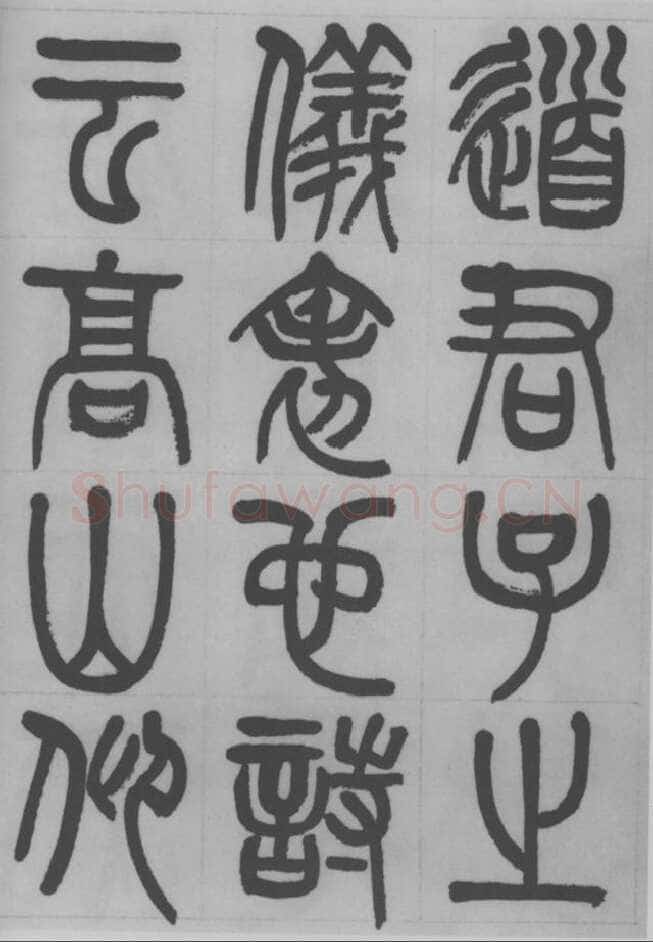 道君子之
儀表也詩
云高山仰
Shufawang.CN